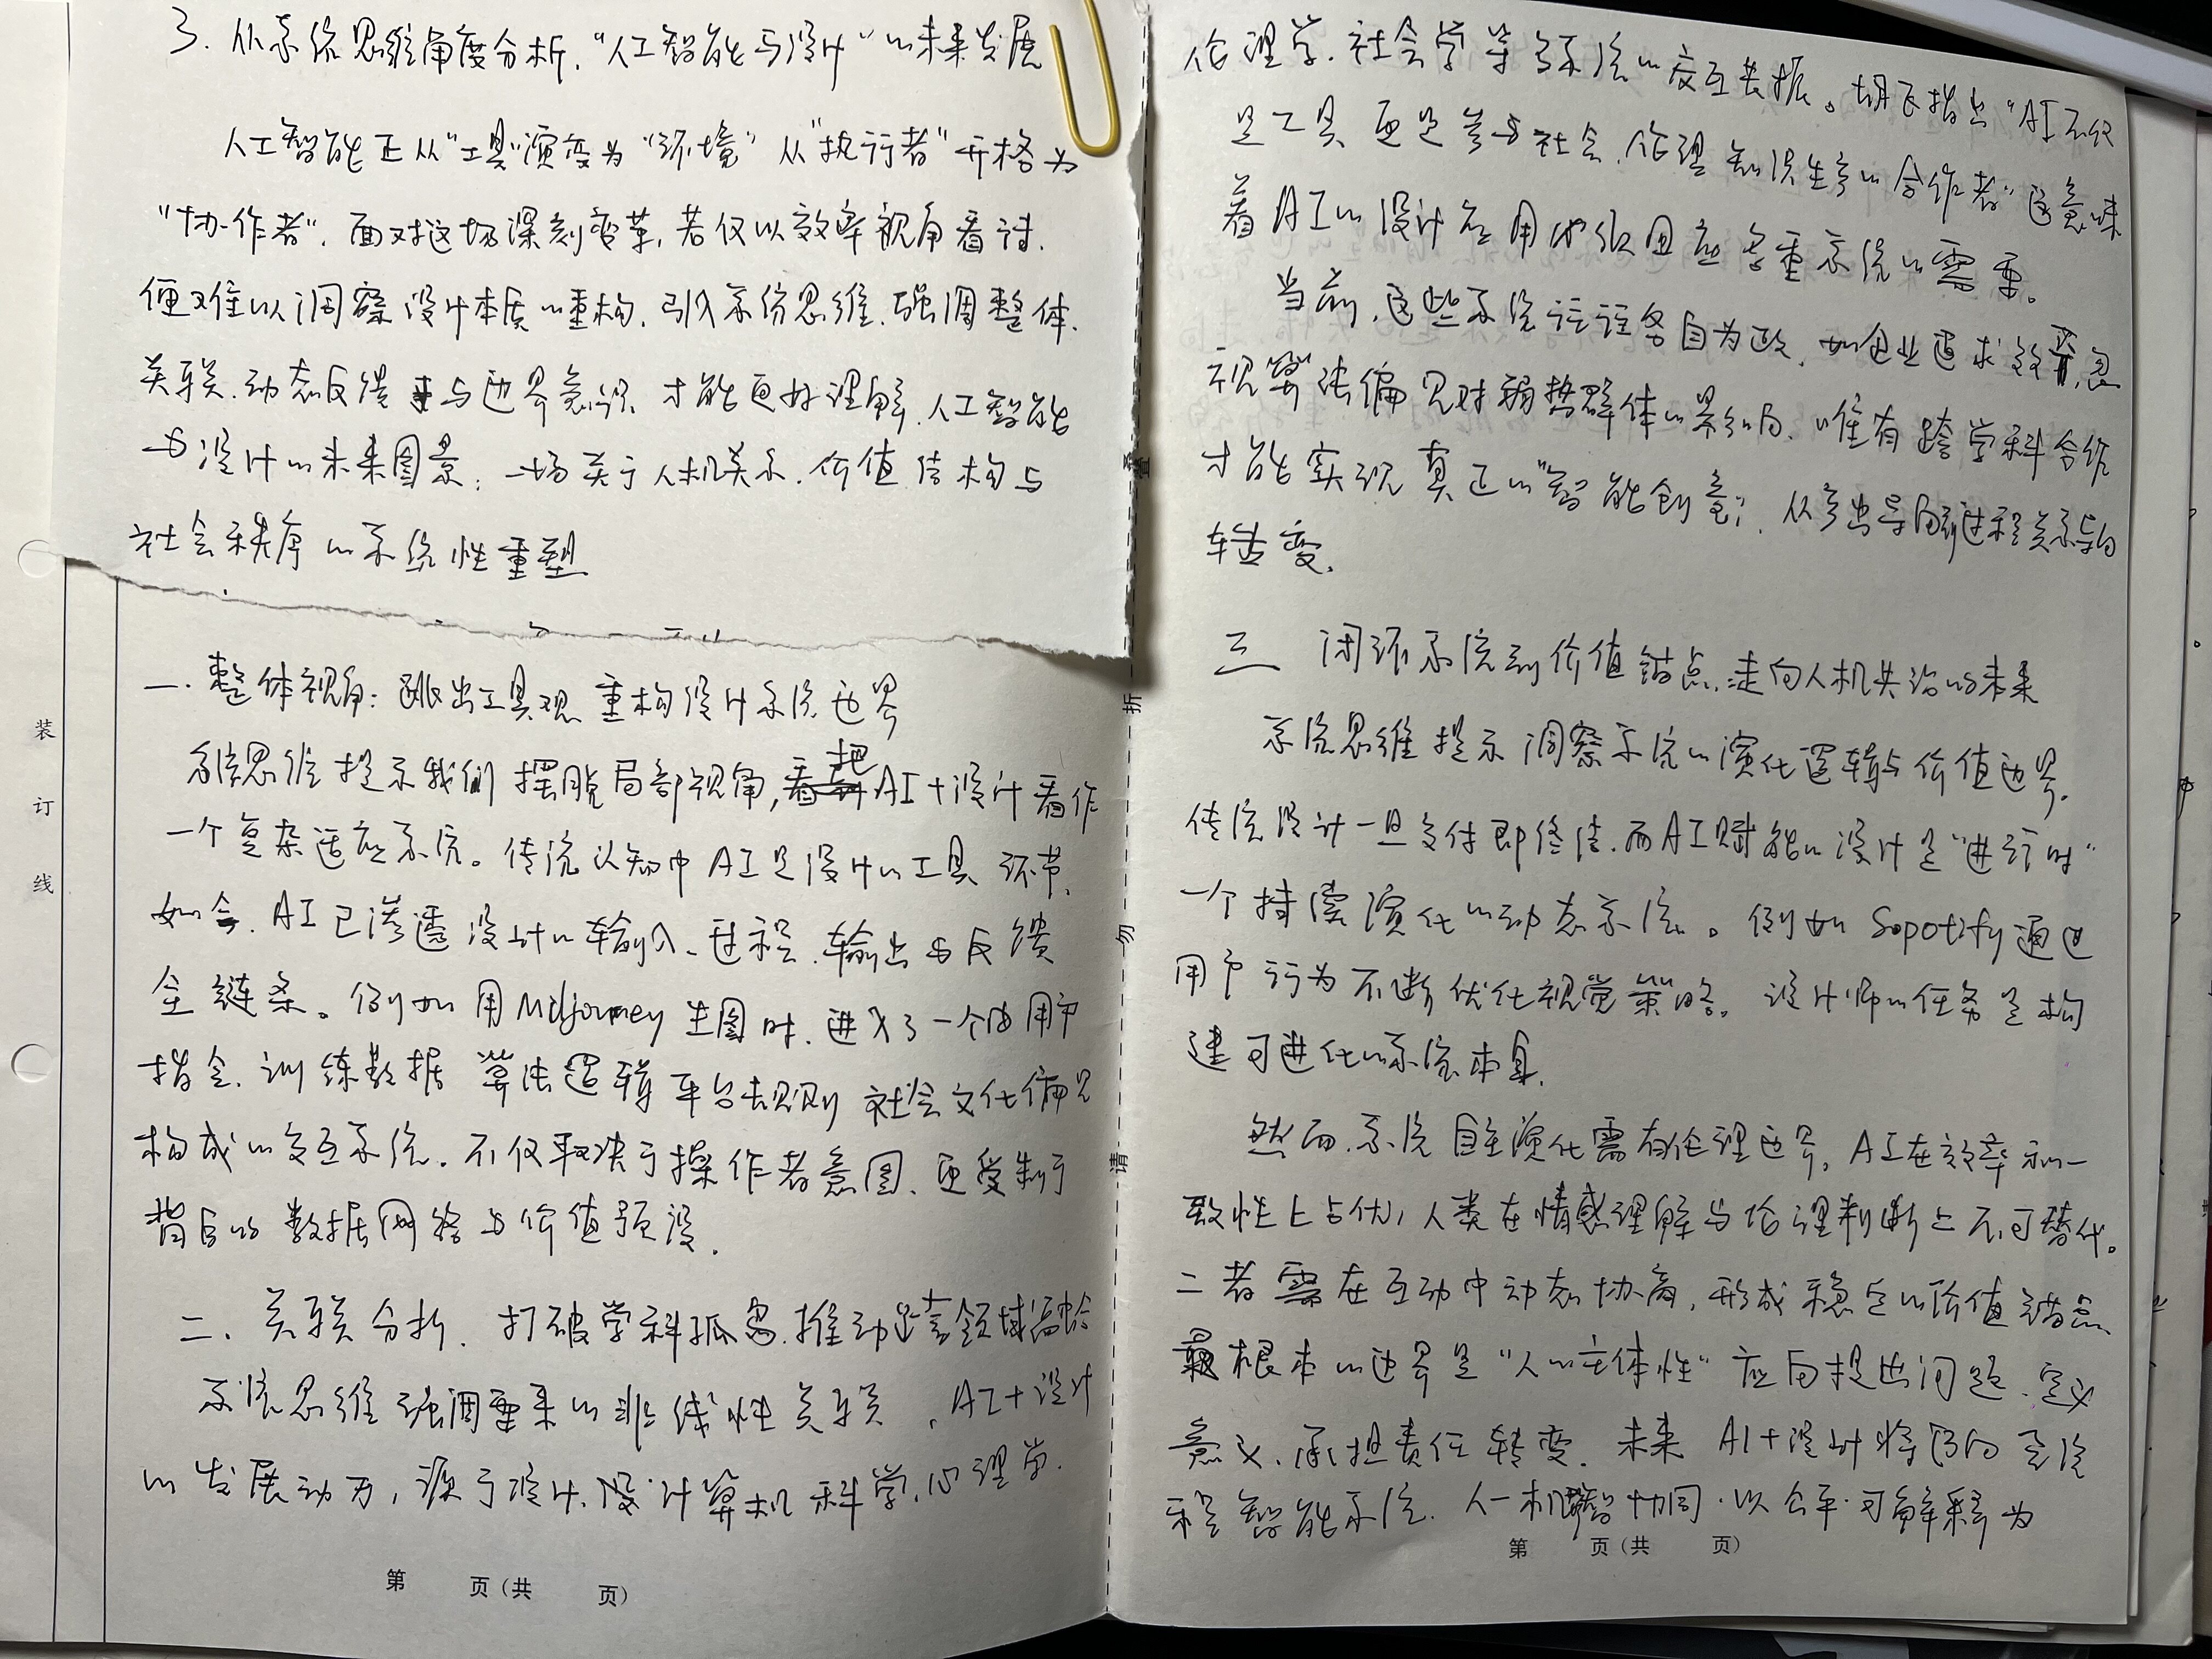 3. 从系统思维角度分析，“人工智能与设计”的未来发展
人工智能正从“工具”演变为“环境”从“执行者”升格为
“协作者”，面对这场深刻变革，若仅以效率视角看待，
便难以洞察设计本质的重构，引入系统思维，强调整体、
关联、动态反馈与边界意识，才能更好理解，人工智能
与设计的未来图景：一场关于人机关系、价值结构与
社会秩序的系统性重塑
一、整体视角：跳出工具观 重构设计系统边界
系统思维提示我们摆脱局部视角，把AI+设计看作
一个复杂适应系统。传统认知中AI是设计的工具环节，
如今，AI已渗透设计的输入、过程、输出与反馈
全链条。例如用Midjourney生图时，进入了一个由用户
指令、训练数据 算法逻辑 平台规则 社会文化偏见
构成的交互系统。不仅取决于操作者意图、更受制于
背后的数据网络与价值预设。
二、关联分析，打破学科孤岛，推动跨领域融合
系统思维强调要素的非线性关联，AI+设计
的发展动力，源于设计、计算机科学，心理学，
伦理学、社会学等多系统的交互共振。胡飞指出“AI不仅
是工具 更是参与社会、伦理 知识生产的合作者”这意味
着AI的设计应用必须回应多重系统的需要。
当前，这些系统往往各自为政，如企业追求效益，忽
视算法偏见对弱势群体的影响、唯有跨学科合作
才能实现真正的“智能创意”，从产出导向到过程关系导向
转变。
三 闭环系统到价值锚点，走向人机共治的未来
系统思维提示洞察系统的演化逻辑与价值边界。
传统设计一旦交付即终结，而AI赋能的设计是“进行时”
一个持续演化的动态系统。例如Sopotify通过
用户行为不断优化视觉策略。设计师的任务是构
建可进化的系统本身。
然而，系统自主演化需有伦理边界。AI在效率和一
致性上占优，人类在情感理解与伦理判断上不可替代。
二者需在互动中动态协商，形成稳定的价值锚点。
最根本的边界是“人的主体性”应向提出问题、定义
意义、承担责任转变。未来 AI+设计将迈向全流
程智能系统、人—机智协同·以公平·可解释为
装
订
线
折
叠
勿
请
第 页（共 页）
第 页（共 页）